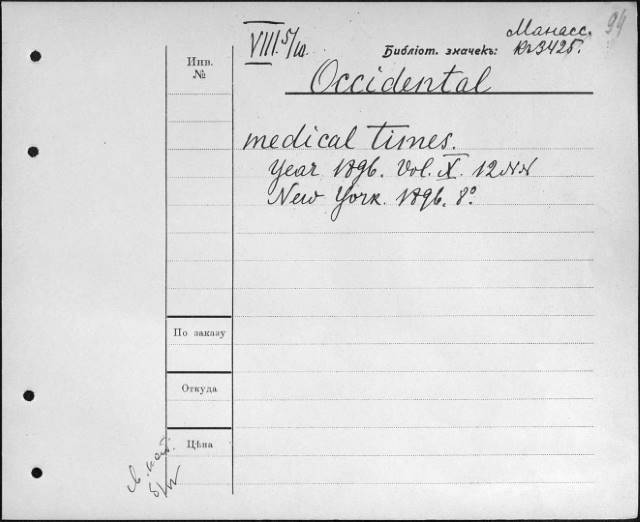 VIII.5/10
Манасс. 94
Библіот. значекъ: Kr3425.
Инв.
№
Occidental
medical times.
Year 1896. Vol. X. 12 NN
New York. 1896. 8°
По заказу
Откуда
Цѣна